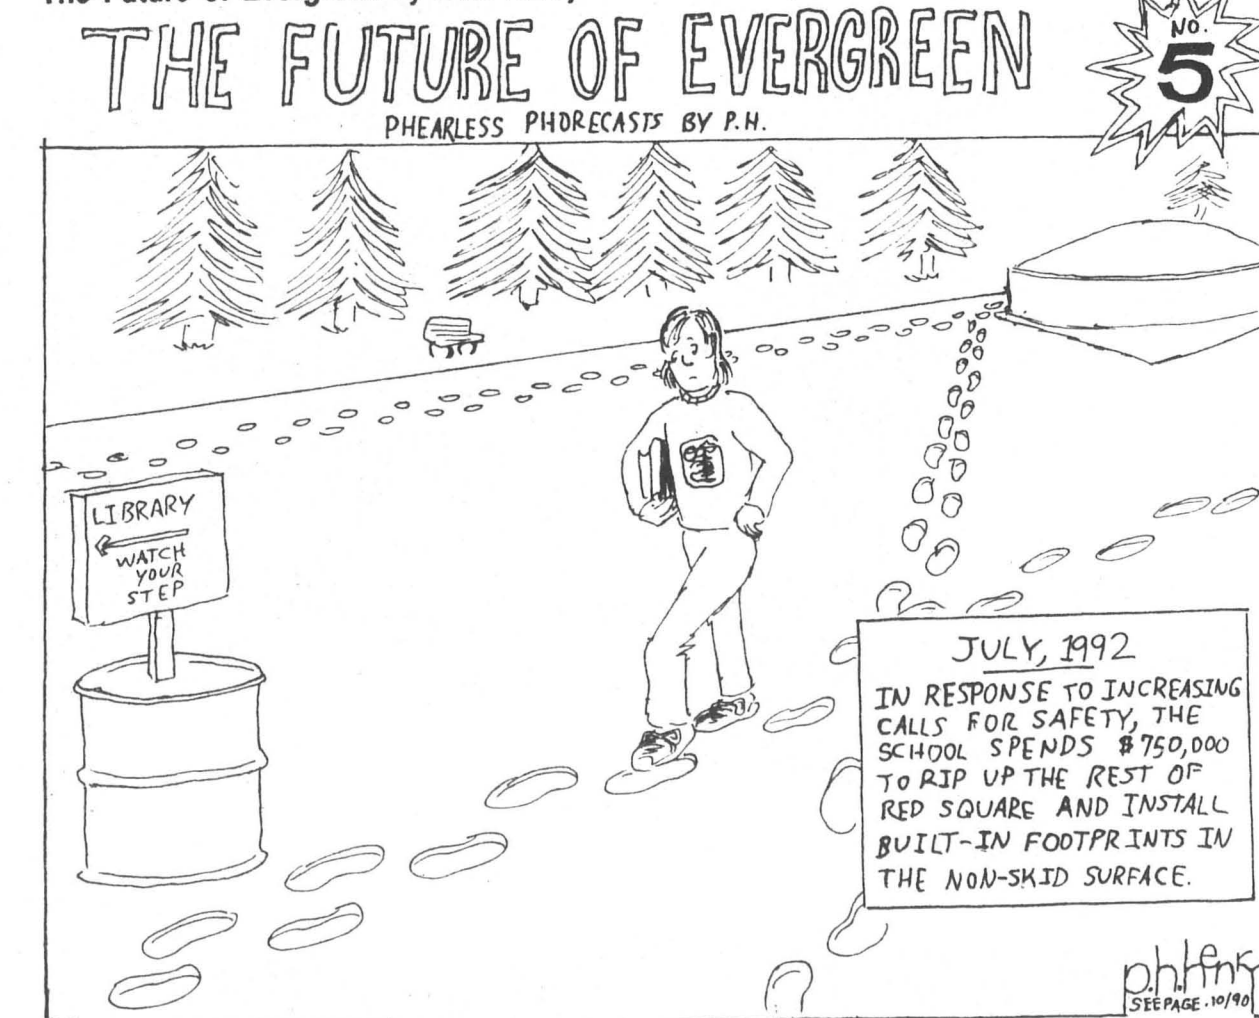 THE FUTURE OF EVERGREEN
PHEARLESS PHORECASTS BY P.H.
NO.
5
LIBRARY
WATCH
YOUR
STEP
JULY, 1992
IN RESPONSE TO INCREASING
CALLS FOR SAFETY, THE
SCHOOL SPENDS $750,000
TO RIP UP THE REST OF
RED SQUARE AND INSTALL
BUILT-IN FOOTPRINTS IN
THE NON-SKID SURFACE.
p.h.Henk
SEEPAGE.10/90